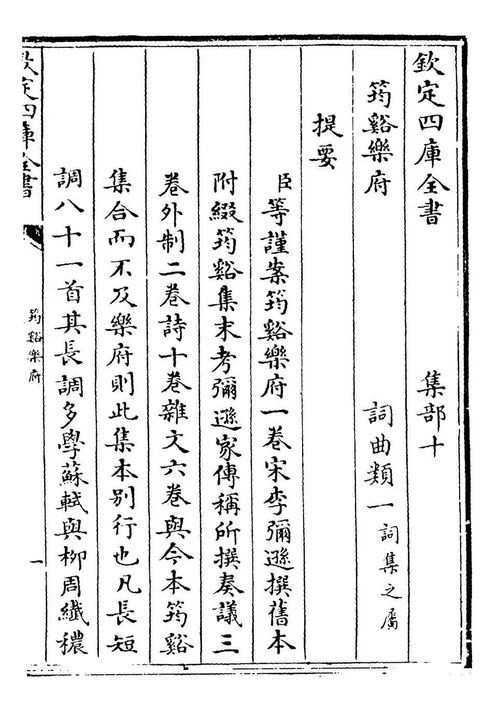 欽定四庫全書　集部十
筠谿樂府　詞曲類一詞集之屬
提要
臣等謹案筠谿樂府一卷宋李彌遜撰舊本
附綴筠谿集末考彌遜家傳稱所撰奏議三
卷外制二卷詩十卷雜文六卷與今本筠谿
集合而不及樂府則此集本別行也凡長短
調八十一首其長調多學蘇軾與柳周纖穠
欽定四庫全書
筠谿樂府
一